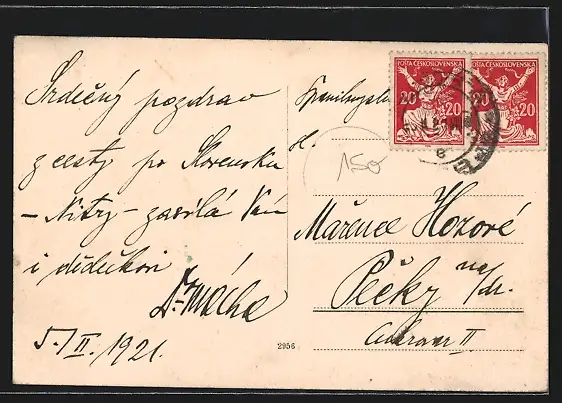 Srdečný pozdrav
z cesty po Slovensku
- Nitry - zasílá Vám
i dědečkovi
Dr. Mácha
5./II. 1921.
2956
POŠTA ČESKOSLOVENSKÁ
20 20
POŠTA ČESKOSLOVENSKÁ
20 20
150
Mařence Hozové
Pečky na/dr.